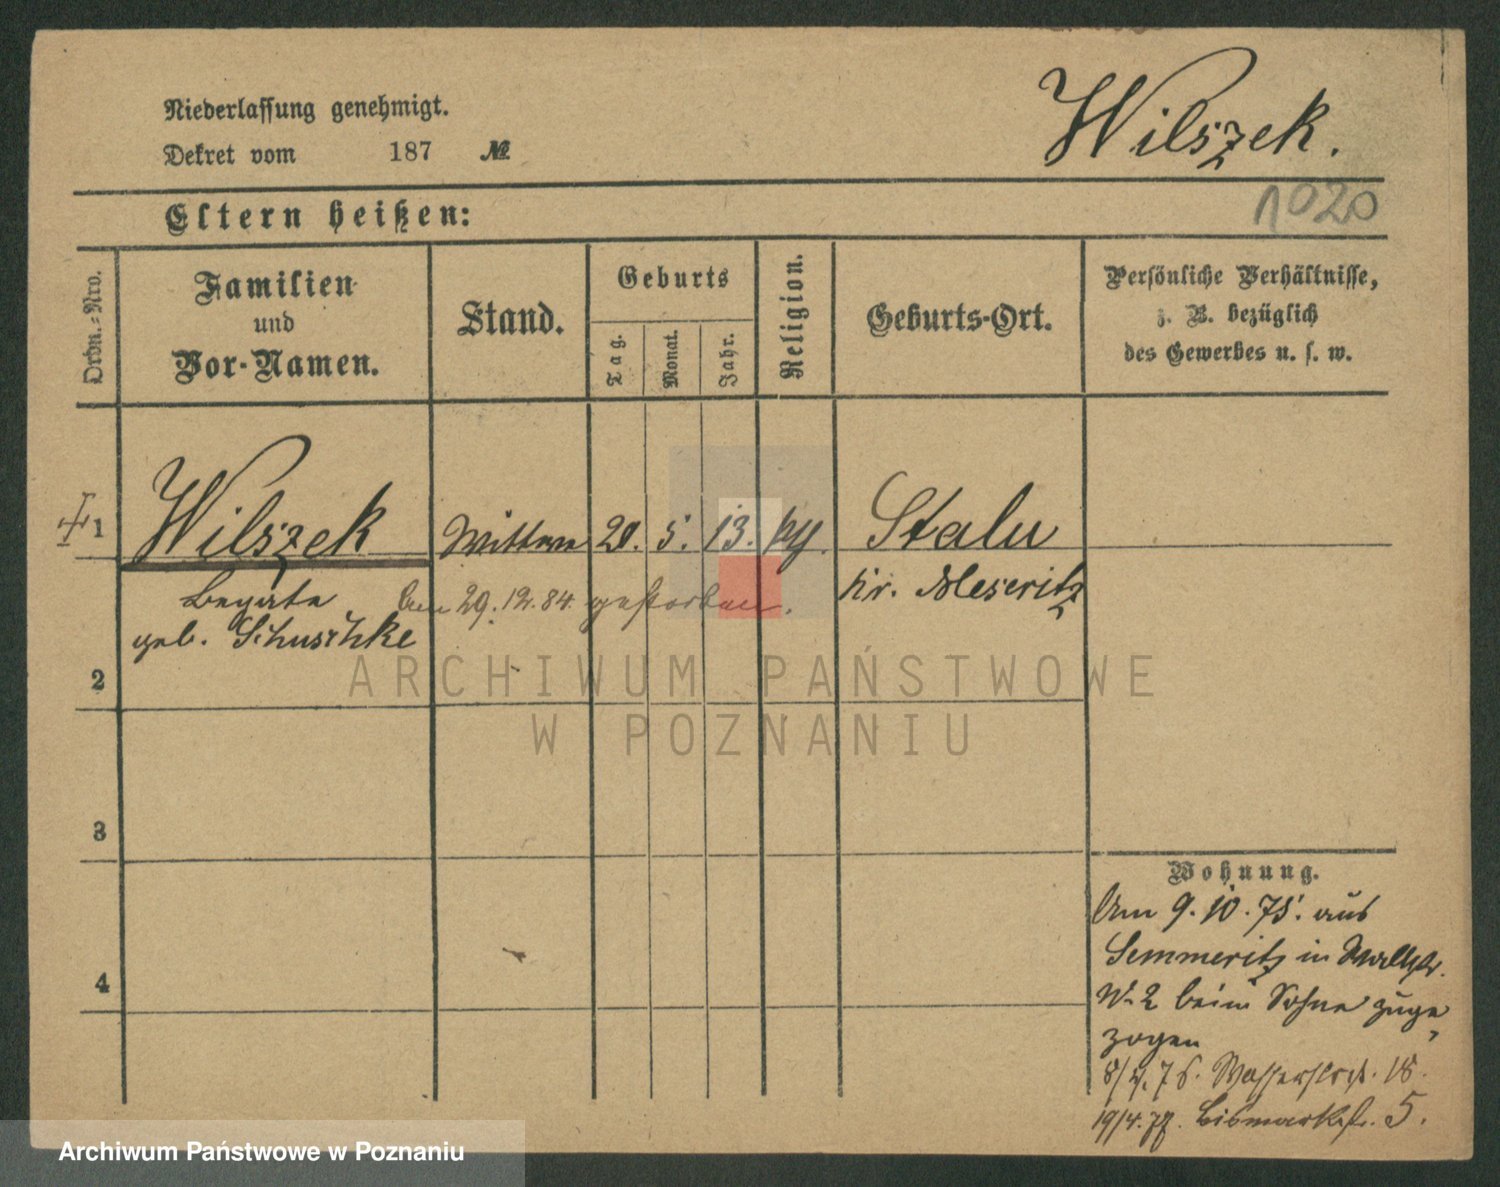 Niederlassung genehmigt.
Dekret vom 187 №
Wilszek.
1020
Eltern heißen:
Ordn.-Nro.
Familien
und
Vor-Namen.
Stand.
Geburts
Tag.
Monat.
Jahr.
Religion.
Geburts-Ort.
Persönliche Verhältnisse,
z. B. bezüglich
des Gewerbes u. s. w.
1 Wilszek Wittwe 20. 5. 13. Stalu
Beate am 29.12.84. gestorben. Kr. Meseritz
geb. Schuschke
2
3
4
Wohnung.
Am 9.10.75. aus
Semmeritz in
beim Sohne zuge
zogen
Wasserstr. 18.
19/4.77. Bismarckstr. 5.
ARCHIWUM PAŃSTWOWE
W POZNANIU
Archiwum Państwowe w Poznaniu